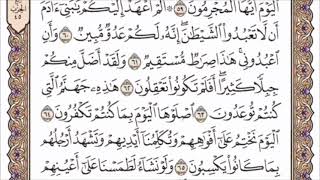 ٱلۡيَوۡمَ أَيُّهَا ٱلۡمُجۡرِمُونَ ٥٩ ۞ أَلَمۡ أَعۡهَدۡ إِلَيۡكُمۡ يَٰبَنِيٓ ءَادَمَ
أَن لَّا تَعۡبُدُواْ ٱلشَّيۡطَٰنَۖ إِنَّهُۥ لَكُمۡ عَدُوّٞ مُّبِينٞ ٦٠ وَأَنِ
ٱعۡبُدُونِيۚ هَٰذَا صِرَٰطٞ مُّسۡتَقِيمٞ ٦١ وَلَقَدۡ أَضَلَّ مِنكُمۡ
جِبِلّٗا كَثِيرًاۖ أَفَلَمۡ تَكُونُواْ تَعۡقِلُونَ ٦٢ هَٰذِهِۦ جَهَنَّمُ ٱلَّتِي
كُنتُمۡ تُوعَدُونَ ٦٣ ٱصۡلَوۡهَا ٱلۡيَوۡمَ بِمَا كُنتُمۡ تَكۡفُرُونَ ٦٤
ٱلۡيَوۡمَ نَخۡتِمُ عَلَىٰٓ أَفۡوَٰهِهِمۡ وَتُكَلِّمُنَآ أَيۡدِيهِمۡ وَتَشۡهَدُ أَرۡجُلُهُم
بِمَا كَانُواْ يَكۡسِبُونَ ٦٥ وَلَوۡ نَشَآءُ لَطَمَسۡنَا عَلَىٰٓ أَعۡيُنِهِمۡ